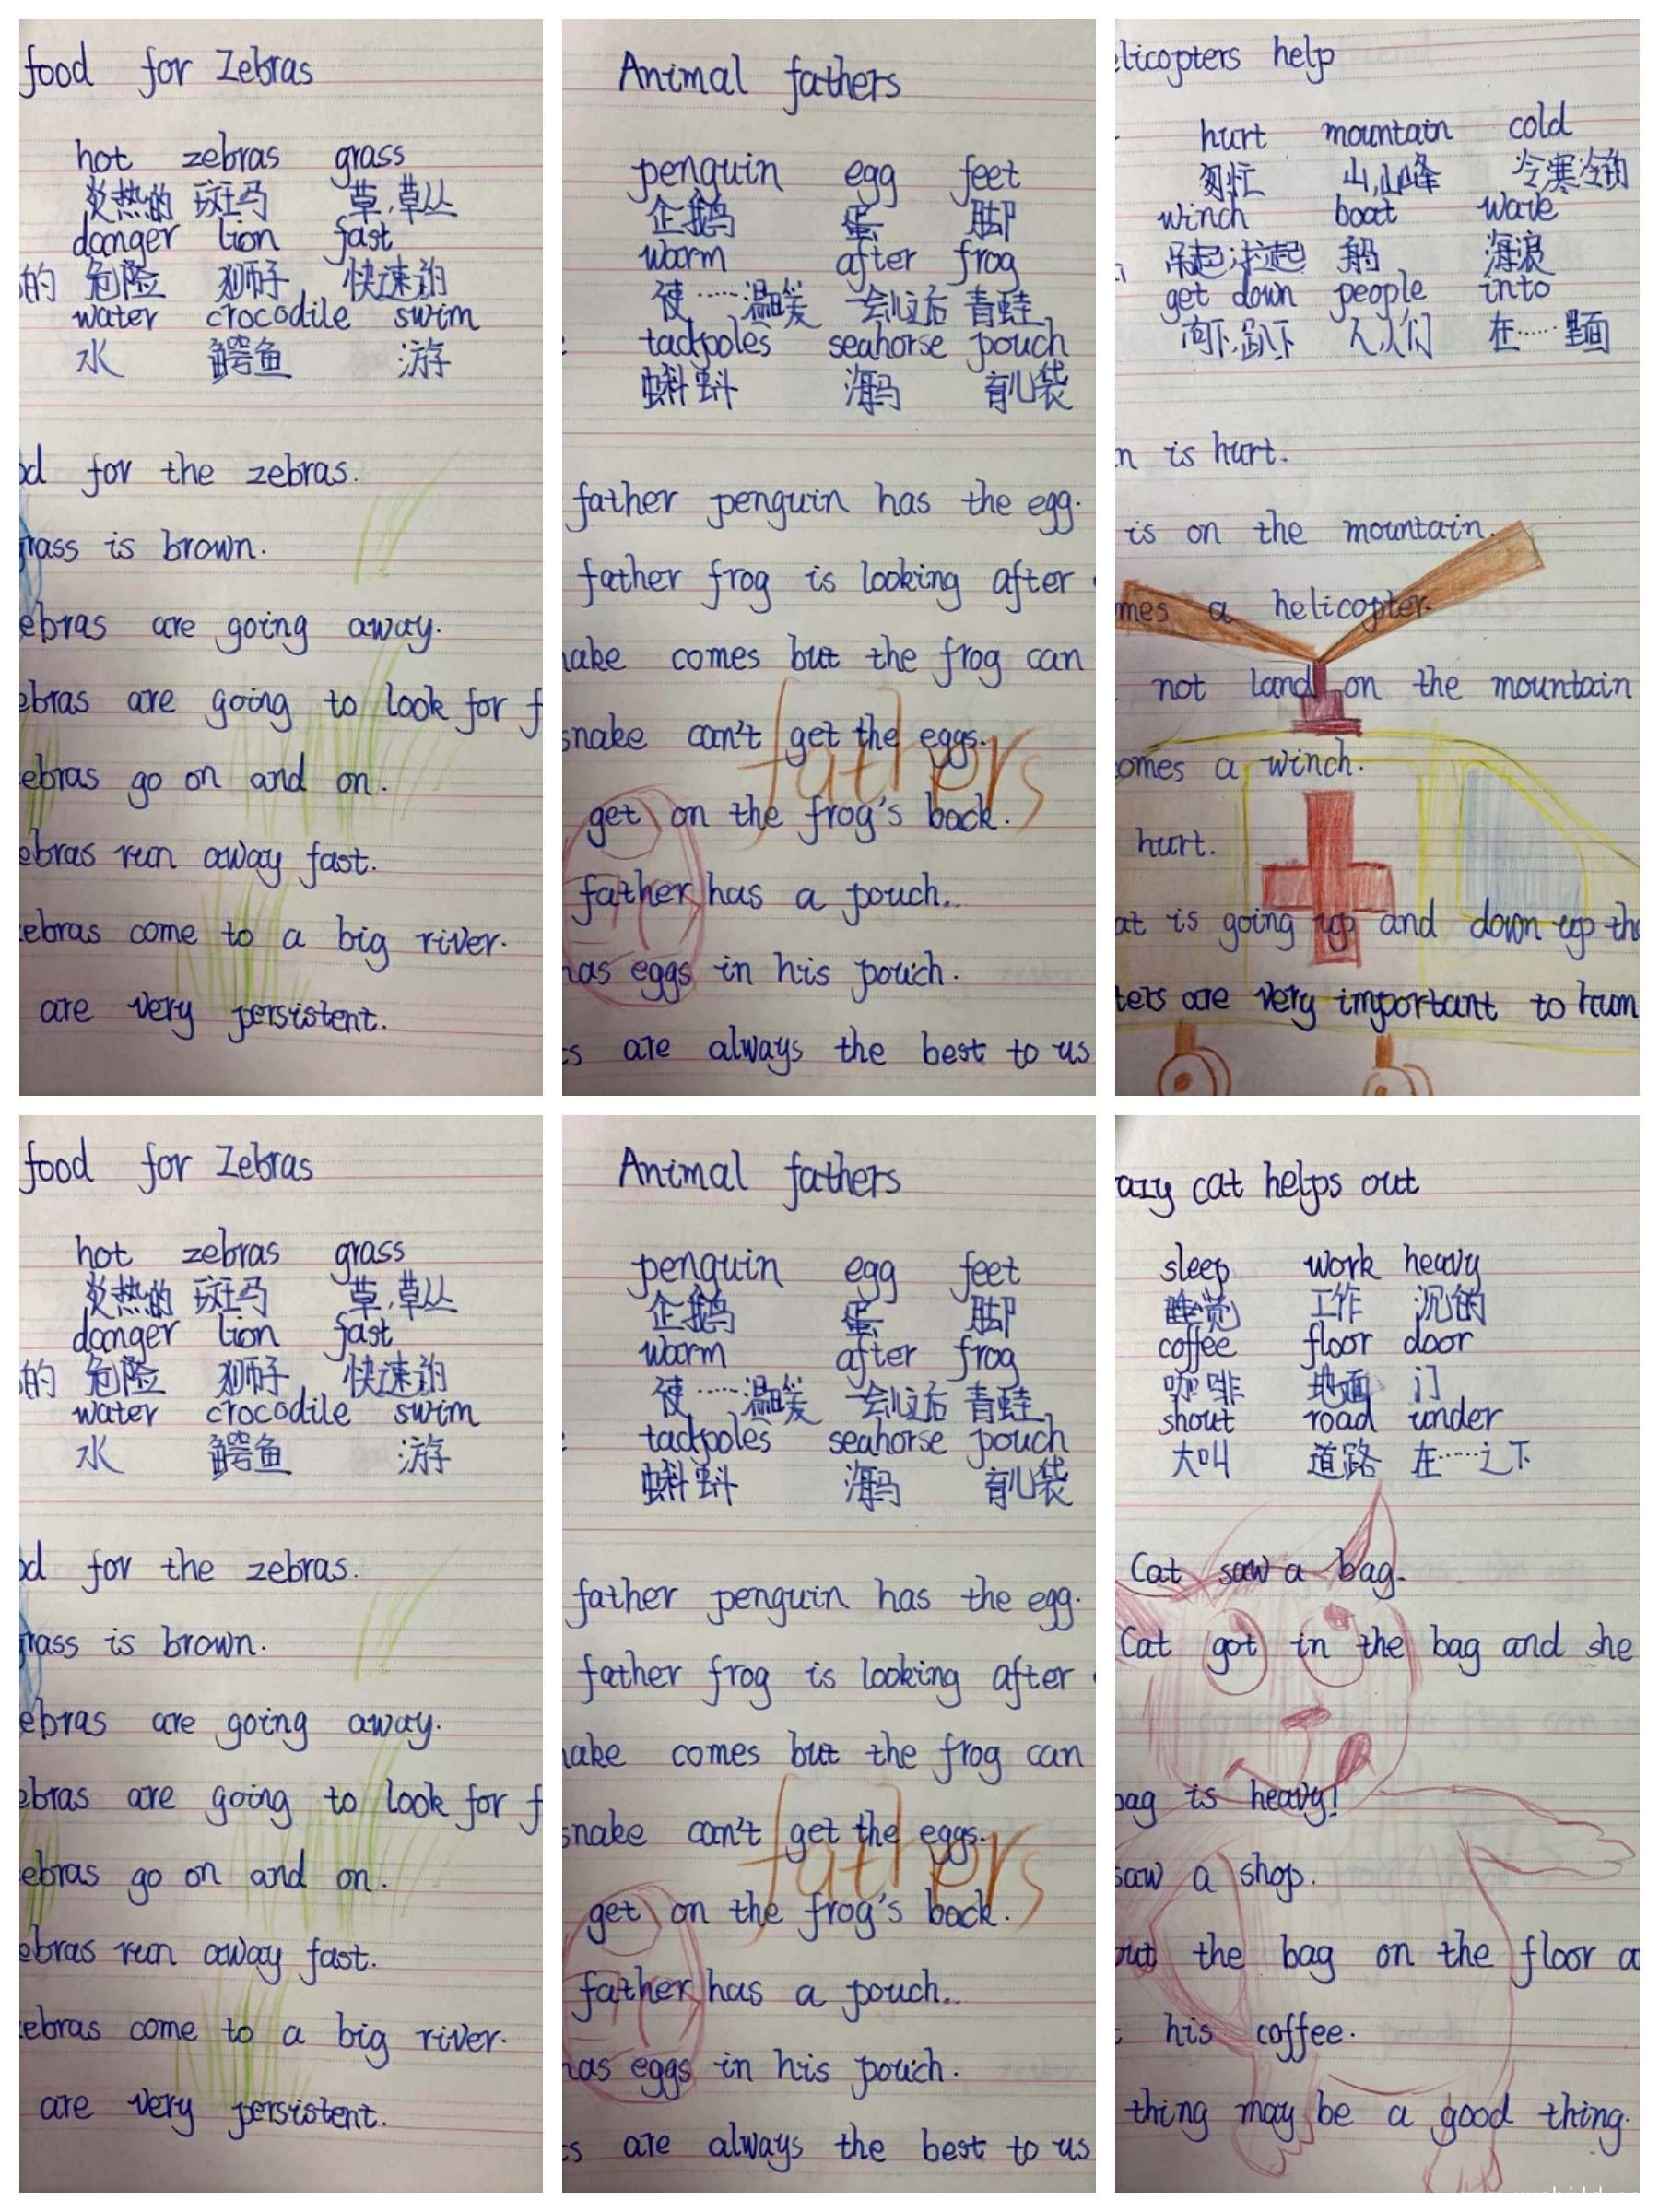 food for Zebras
hot zebras grass
炎热的 斑马 草,草丛
danger lion fast
的 危险 狮子 快速的
water crocodile swim
水 鳄鱼 游
for the zebras.
is brown.
are going away.
are going to look for f
go on and on.
run away fast.
come to a big river.
are very persistent.
Animal fathers
penguin egg feet
企鹅 蛋 脚
warm after frog
使……温暖 青蛙
tadpoles seahorse pouch
蝌蚪 海马 育儿袋
father penguin has the egg.
father frog is looking after
ake comes but the frog can
snake can't get the eggs.
fathers
get on the frog's back.
father has a pouch..
has eggs in his pouch.
s are always the best to us
licopters help
hurt mountain cold
山,山峰
winch boat wave
吊起;拉起 船 海浪
get down people into
向下,趴下 人,人们 在……里面
n is hurt.
is on the mountain.
mes a helicopter.
not land on the mountain
omes a winch.
hurt.
at is going up and down up the
ters are very important to hum
food for Zebras
hot zebras grass
炎热的 斑马 草,草丛
danger lion fast
的 危险 狮子 快速的
water crocodile swim
水 鳄鱼 游
for the zebras.
is brown.
are going away.
are going to look for f
go on and on.
run away fast.
come to a big river.
are very persistent.
Animal fathers
penguin egg feet
企鹅 蛋 脚
warm after frog
使……温暖 青蛙
tadpoles seahorse pouch
蝌蚪 海马 育儿袋
father penguin has the egg.
father frog is looking after
ake comes but the frog can
snake can't get the eggs.
fathers
get on the frog's back.
father has a pouch..
has eggs in his pouch.
s are always the best to us
azy cat helps out
sleep work heavy
睡觉 工作 沉的
coffee floor door
咖啡 地面 门
shout road under
大叫 道路 在……之下
Cat saw a bag.
Cat got in the bag and she
bag is heavy!
saw a shop.
out the bag on the floor a
his coffee.
thing may be a good thing.